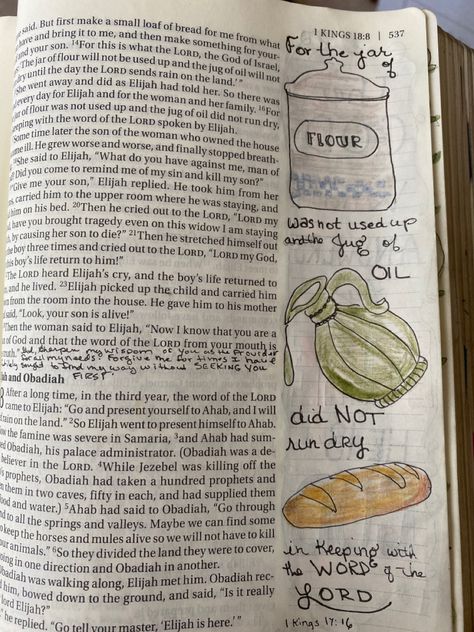 1 KINGS 18:8 | 537
said. But first make a small loaf of bread for me from what
have and bring it to me, and then make something for your-
and your son. 14For this is what the LORD, the God of Israel,
'The jar of flour will not be used up and the jug of oil will not
dry until the day the LORD sends rain on the land.'"
She went away and did as Elijah had told her. So there was
every day for Elijah and for the woman and her family. 16For
of flour was not used up and the jug of oil did not run dry,
keeping with the word of the LORD spoken by Elijah.
Some time later the son of the woman who owned the house
ill. He grew worse and worse, and finally stopped breath-
She said to Elijah, "What do you have against me, man of
Did you come to remind me of my sin and kill my son?"
"Give me your son," Elijah replied. He took him from her
carried him to the upper room where he was staying, and
him on his bed. 20Then he cried out to the LORD, "LORD my
have you brought tragedy even on this widow I am staying
by causing her son to die?" 21Then he stretched himself out
the boy three times and cried out to the LORD, "LORD my God,
this boy's life return to him!"
The LORD heard Elijah's cry, and the boy's life returned to
and he lived. 23Elijah picked up the child and carried him
from the room into the house. He gave him to his mother
said, "Look, your son is alive!"
Then the woman said to Elijah, "Now I know that you are a
of God and that the word of the LORD from your mouth is
my wisdom of you as the Provider
for my needs. Forgive me for times I have
sought to find my way without SEEKING YOU
FIRST.
and Obadiah
After a long time, in the third year, the word of the LORD
came to Elijah: "Go and present yourself to Ahab, and I will
rain on the land." 2So Elijah went to present himself to Ahab.
the famine was severe in Samaria, 3and Ahab had sum-
Obadiah, his palace administrator. (Obadiah was a de-
believer in the LORD. 4While Jezebel was killing off the
prophets, Obadiah had taken a hundred prophets and
them in two caves, fifty in each, and had supplied them
food and water.) 5Ahab had said to Obadiah, "Go through
to all the springs and valleys. Maybe we can find some
to keep the horses and mules alive so we will not have to kill
our animals." 6So they divided the land they were to cover,
going in one direction and Obadiah in another.
Obadiah was walking along, Elijah met him. Obadiah rec-
him, bowed down to the ground, and said, "Is it really
lord Elijah?"
he replied. "Go tell your master, 'Elijah is here.'"
For the jar
of
FLOUR
was not used up
and the Jug of
OIL
did NOT
run dry
in Keeping with
the WORD of the
LORD
1 Kings 17:16